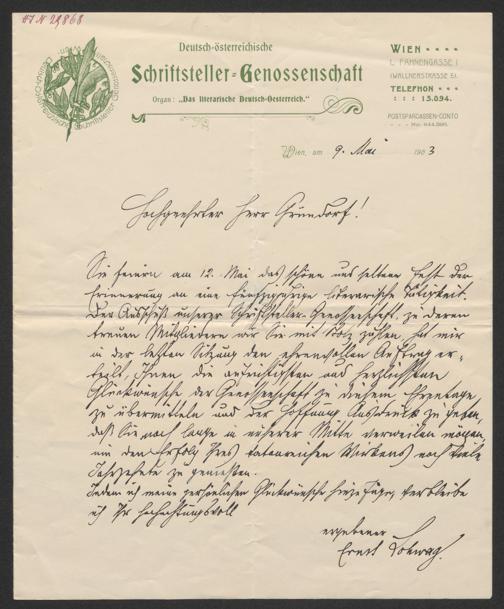 HJN 29868
Deutsch-österreichische
Schriftsteller-Genossenschaft
Organ: „Das literarische Deutsch-Oesterreich."
WIEN
I., FAHNENGASSE 1
(WALLNERSTRASSE 5).
TELEFHON
15.094.
POSTSPARCASSEN-CONTO
Wien, am 9. Mai 1903
Hochgeehrter Herr Gründorf!
Sie feiern am 12. Mai das schöne und seltene Fest der
Erinnerung an eine fünfzigjährige literarische Tätigkeit.
Der Ausschuß unserer Schriftsteller-Genossenschaft, zu deren
treuen Mitgliedern wir Sie mit Stolz zählen, hat mir
in der letzten Sitzung den ehrenvollen Auftrag er-
teilt, Ihnen die aufrichtigsten und herzlichsten
Glückwünsche der Genossenschaft zu diesem Ehrentage
zu übermitteln und der Hoffnung Ausdruck zu geben,
daß Sie noch lange in unserer Mitte verweilen mögen,
um den Erfolg Ihres tatenreichen Wirkens noch viele
Jahrzehnte zu genießen.
Indem ich meine persönlichen Glückwünsche hinzufüge, verbleibe
ich Ihr hochachtungsvoll
ergebener
Ernst Lohwag.